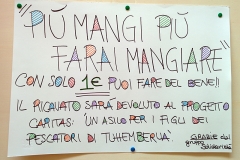 "PIÙ MANGI PIÙ
FARAI MANGIARE"
CON SOLO 1€ PUOI FARE DEL BENE!!
IL RICAVATO SARÀ DEVOLUTO AL PROGETTO
CARITAS: UN ASILO PER I FIGLI DEI
PESCATORI DI TUHEMBERUA
GRAZIE dal
gruppo
Solidarietà